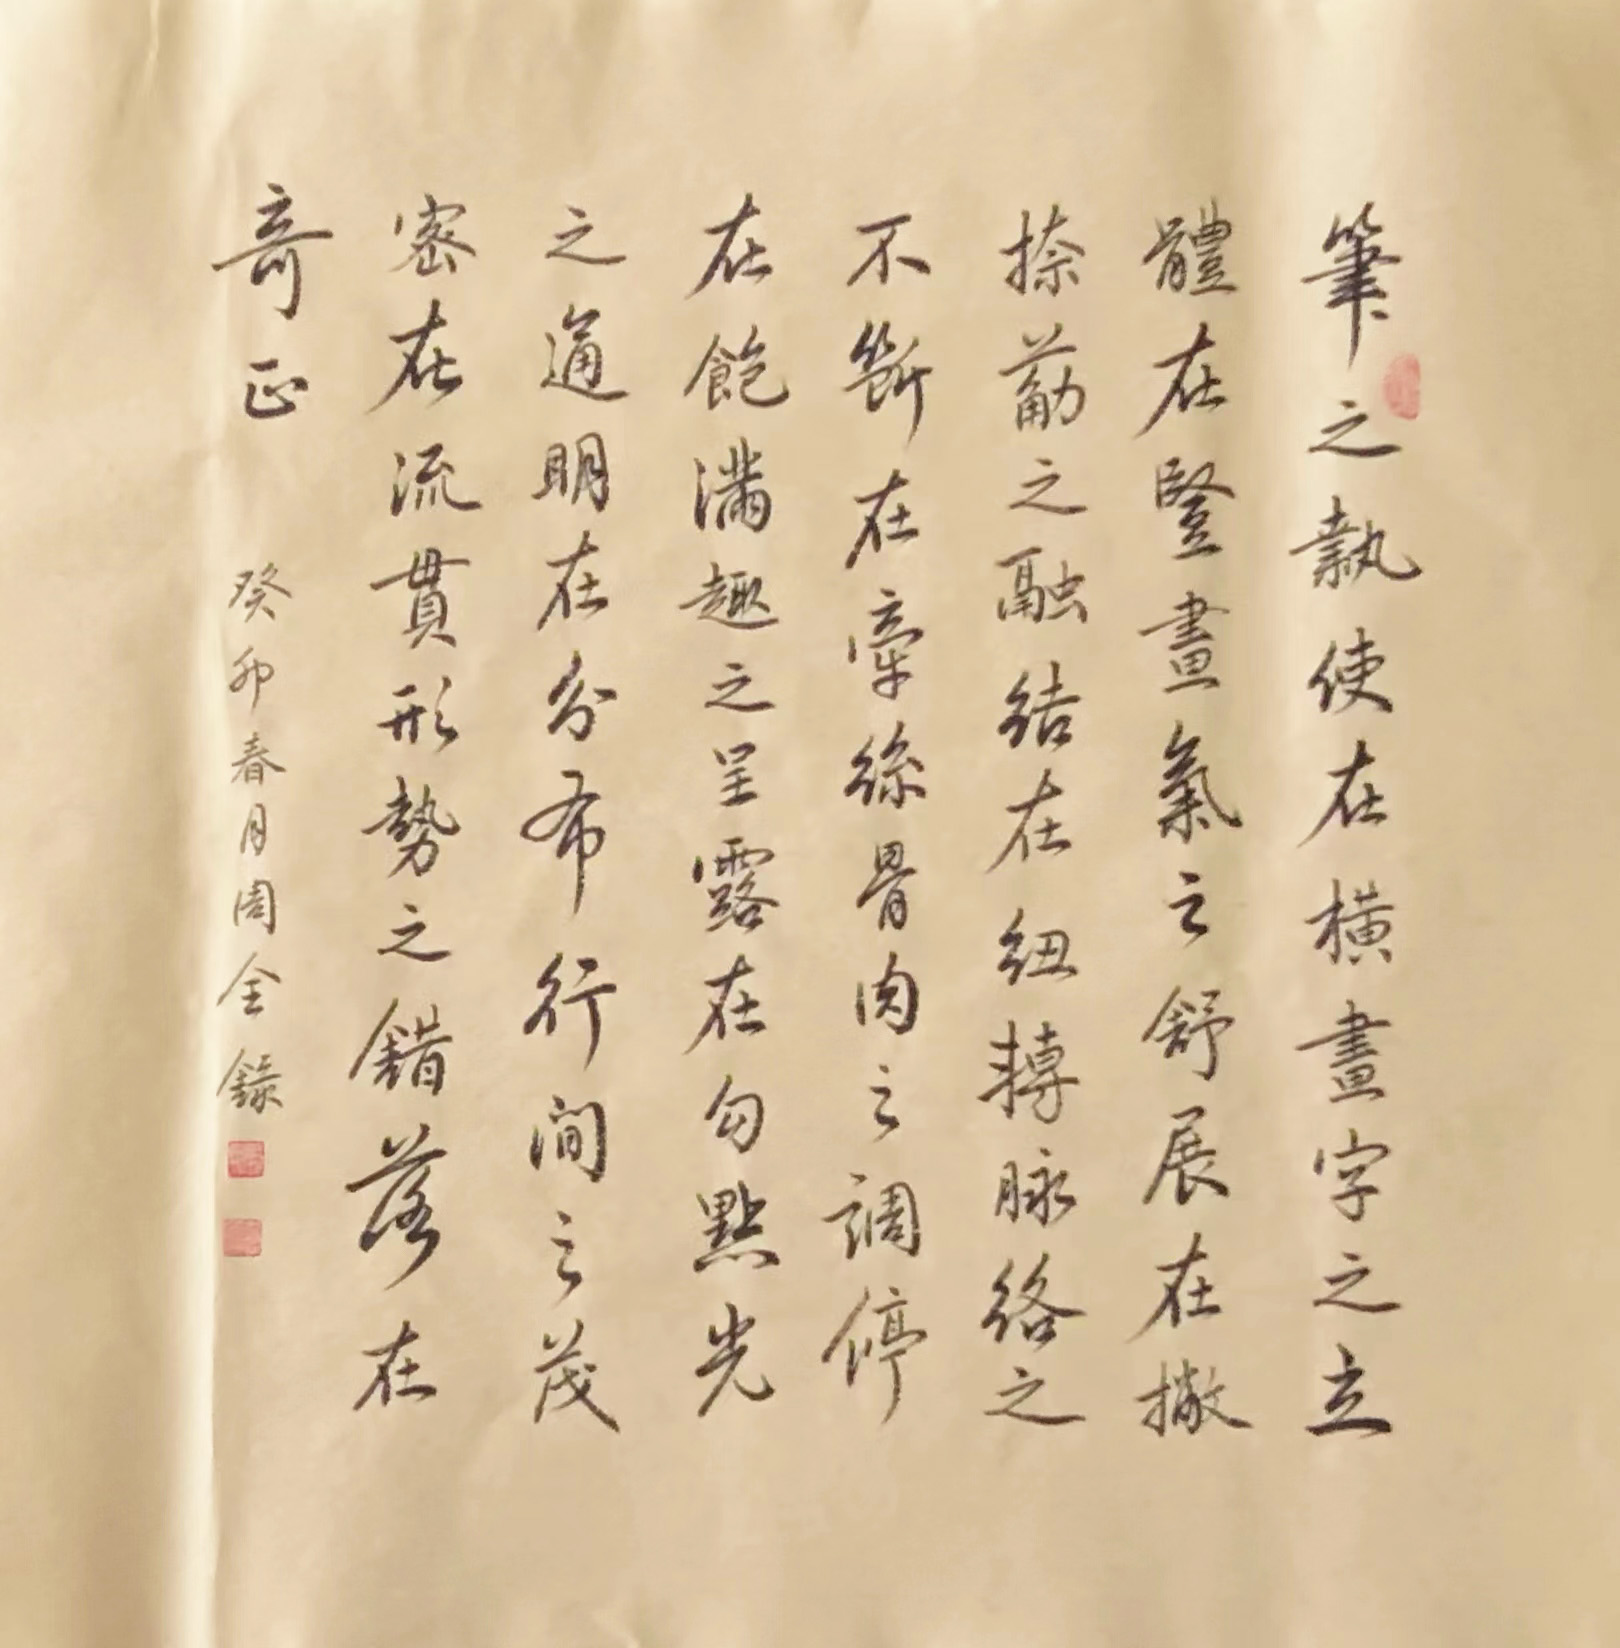 筆之執使在橫畫字之立
體在豎畫氣之舒展在撇
捺筋之融結在紐轉脉絡之
不斷在牽絲骨肉之調停
在飽滿趣之呈露在勾點光
之通明在分布行間之茂
密在流貫形勢之錯落在
奇正
癸卯春月周全錄